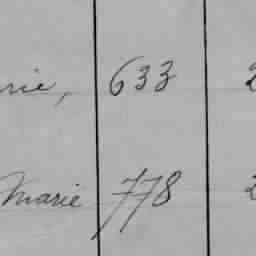 rie, 633 2
Marie 778 2